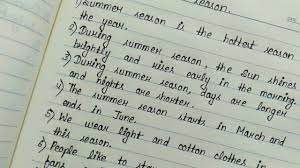 season.
1) Summer season is the hottest season
the year.
2) During summer season, the sun shines
brightly and rises early in the morning
3) During summer season, days are longer
and nights are shorter.
4) The summer season starts in March and
ends in June.
5) We wear light and cotton clothes in
this season.
6) People like to
fans